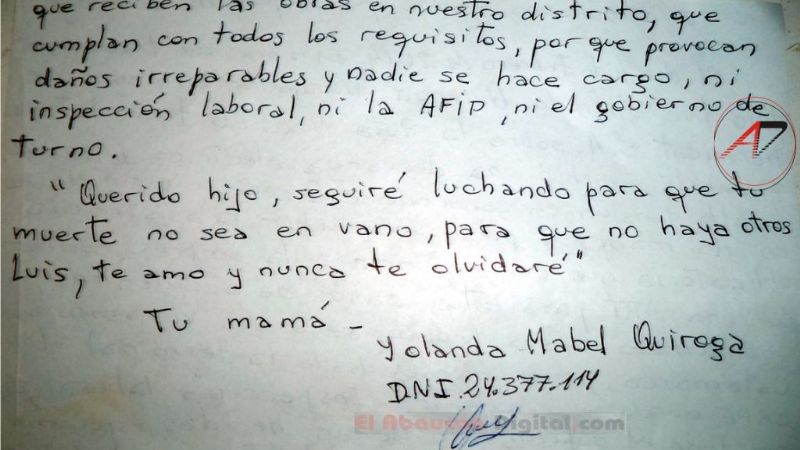 que reciben las obras en nuestro distrito, que
cumplan con todos los requisitos, por que provocan
daños irreparables y nadie se hace cargo, ni
inspección laboral, ni la AFIP, ni el gobierno de
turno.
"Querido hijo, seguiré luchando para que tu
muerte no sea en vano, para que no haya otros
Luis, te amo y nunca te olvidaré"
Tu mamá -
Yolanda Mabel Quiroga
D.N.I. 24.377.114
El Abaucán Digital.com
AD